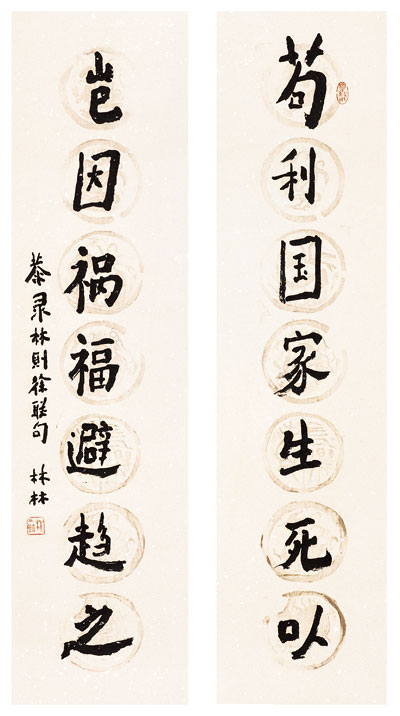 苟利国家生死以
岂因祸福避趋之
恭录林则徐联句 林林